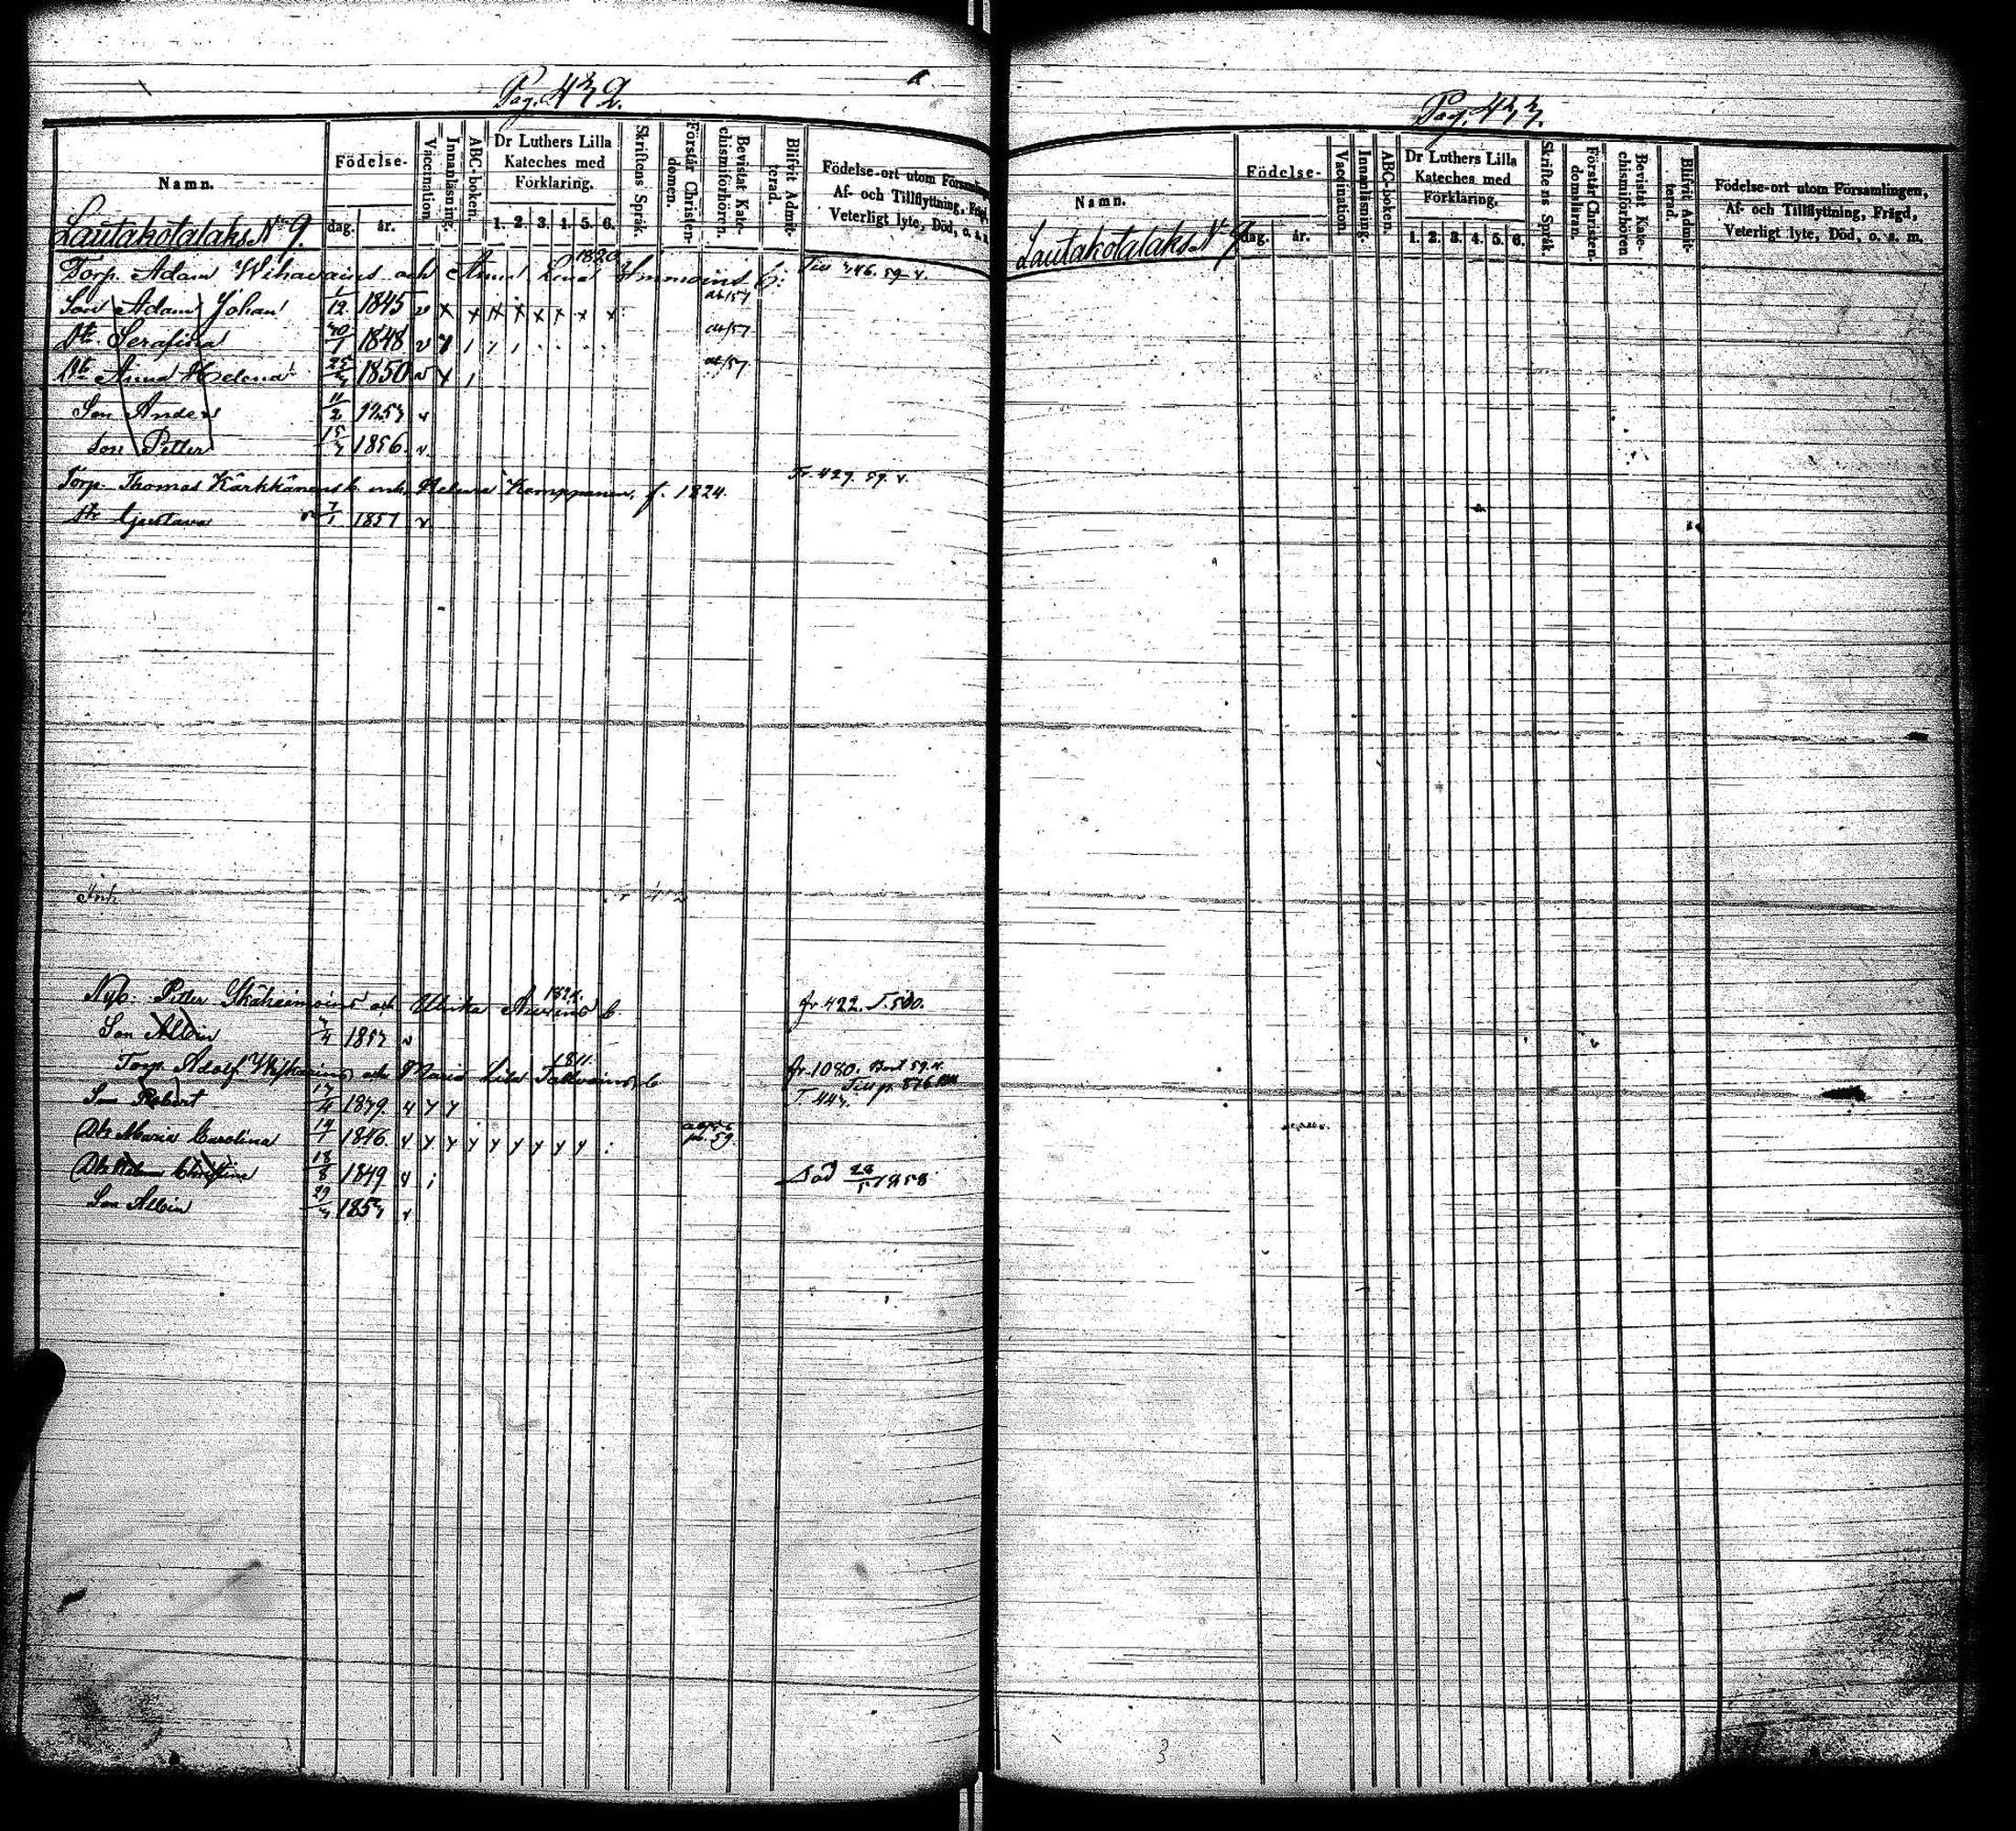 Pag. 432.
Namn.
Födelse-
dag.
år.
Vaccination.
Innanläsning.
ABC-boken.
Dr Luthers Lilla
Kateches med
Förklaring.
1. 2. 3. 4. 5. 6.
Skriftens Språk.
Förstår Christen-
domen.
Bevistat Kate-
chismiförhören.
Blifvit Admit-
terad.
Födelse-ort utom Församling
Af- och Tillflyttning, Frägd
Veterligt lyte, Död, o. s.
Lautakotalaks N:o 9.
Torp. Adam Wihavains och Anna Lena 1820 Immoins b. Till 746. 59 v.
Son Adam Johan 1/12 1845 v x x x x x x x x
Dtr Serafina 1848 v
Dtr Anna Helena 25 1850 v x
Son Anders 11/2 v
Son Petter 15 1856. v
Torp. Thomas Kärkkänens b. enk. Helena Kamppanen, f. 1824. Fr. 429. 59. v.
Dtr Gustava 7/1 1857 v
Inh
Nyb. Petter och Ulrika 1824. b. fr 422. T. 500.
Son Albin v
Torp. Adolf och Maria Lisa 1811. b. fr. 1080. Bort 59. v.
Till p. 876
Son Robert 17/4 v y y T. 447.
Dtr Maria Carolina 19/1 1846. y y y y y y y y y
Dtr Christina 18/8 1849 Död 1858
Son Albin 29 v
Pag. 433.
Namn.
Födelse-
dag.
år.
Vaccination.
Innanläsning.
ABC-boken.
Dr Luthers Lilla
Kateches med
Förklaring.
1. 2. 3. 4. 5. 6.
Skriftens Språk.
Förstår Christen-
domsläran.
Bevistat Kate-
chismiförhören
Blifvit Admit-
terad.
Födelse-ort utom Församlingen,
Af- och Tillflyttning, Frägd,
Veterligt lyte, Död, o. s. m.
Lautakotalaks N:o 9
3